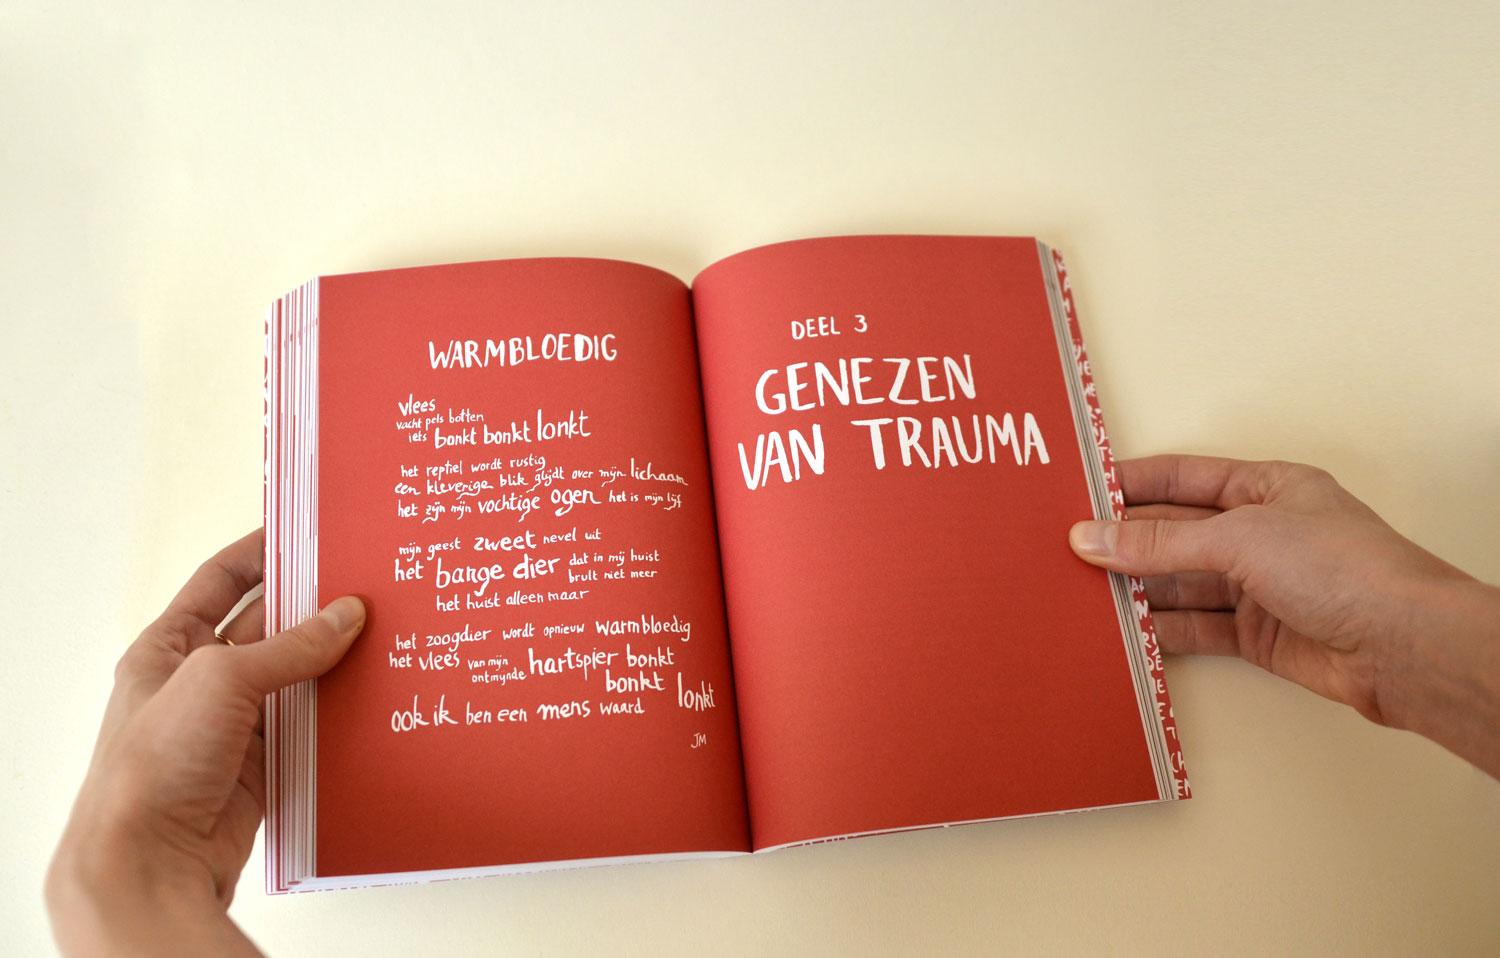 WARMBLOEDIG
vlees
vacht pels botten
iets bonkt bonkt lonkt
het reptiel wordt rustig
een kleverige blik glijdt over mijn lichaam
het zijn mijn vochtige ogen het is mijn lijf
mijn geest zweet nevel uit
het bange dier dat in mij huist
brult niet meer
het huist alleen maar
het zoogdier wordt opnieuw warmbloedig
het vlees van mijn
ontmynde hartspier bonkt
bonkt lonkt
ook ik ben een mens waard
JM
DEEL 3
GENEZEN
VAN TRAUMA